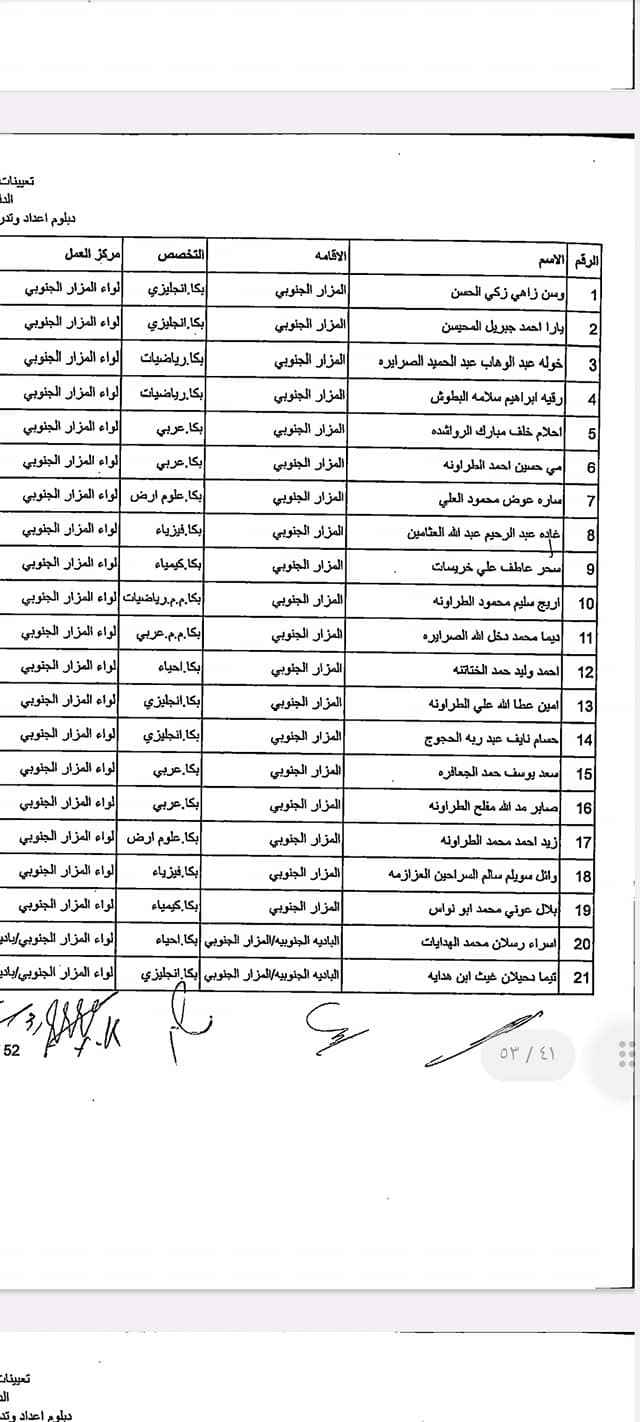 تعيينات
دبلوم اعداد وتدر
الرقم الاسم الاقامه التخصص مركز العمل
1 وسن زاهي زكي الحسن المزار الجنوبي بكا.انجليزي لواء المزار الجنوبي
2 يارا احمد جبريل المحيسن المزار الجنوبي بكا.انجليزي لواء المزار الجنوبي
3 خوله عبد الوهاب عبد الحميد الصرايره المزار الجنوبي بكا.رياضيات لواء المزار الجنوبي
4 رقيه ابراهيم سلامه البطوش المزار الجنوبي بكا.رياضيات لواء المزار الجنوبي
5 احلام خلف مبارك الرواشده المزار الجنوبي بكا.عربي لواء المزار الجنوبي
6 مي حسين احمد الطراونه المزار الجنوبي بكا.عربي لواء المزار الجنوبي
7 ساره عوض محمود العلي المزار الجنوبي بكا.علوم ارض لواء المزار الجنوبي
8 غاده عبد الرحيم عبد الله العثامين المزار الجنوبي بكا.فيزياء لواء المزار الجنوبي
9 سحر عاطف علي خريسات المزار الجنوبي بكا.كيمياء لواء المزار الجنوبي
10 اريج سليم محمود الطراونه المزار الجنوبي بكا.م.م.رياضيات لواء المزار الجنوبي
11 ديما محمد دخل الله الصرايره المزار الجنوبي بكا.م.م.عربي لواء المزار الجنوبي
12 احمد وليد حمد الختاتنه المزار الجنوبي بكا.احياء لواء المزار الجنوبي
13 امين عطا الله علي الطراونه المزار الجنوبي بكا.انجليزي لواء المزار الجنوبي
14 حسام نايف عبد ربه الحجوج المزار الجنوبي بكا.انجليزي لواء المزار الجنوبي
15 سعد يوسف حمد الجعافره المزار الجنوبي بكا.عربي لواء المزار الجنوبي
16 صابر مد الله مفلح الطراونه المزار الجنوبي بكا.عربي لواء المزار الجنوبي
17 زيد احمد محمد الطراونه المزار الجنوبي بكا.علوم ارض لواء المزار الجنوبي
18 وائل سويلم سالم السراحين العزازمه المزار الجنوبي بكا.فيزياء لواء المزار الجنوبي
19 بلال عوني محمد ابو نواس المزار الجنوبي بكا.كيمياء لواء المزار الجنوبي
20 اسراء رسلان محمد الهدايات الباديه الجنوبيه/المزار الجنوبي بكا.احياء لواء المزار الجنوبي/باديه
21 تيما دحيلان غيث ابن هدايه الباديه الجنوبيه/المزار الجنوبي بكا.انجليزي لواء المزار الجنوبي/باديه
52
٤١ / ٥٣
تعيينات
دبلوم اعداد وتدر